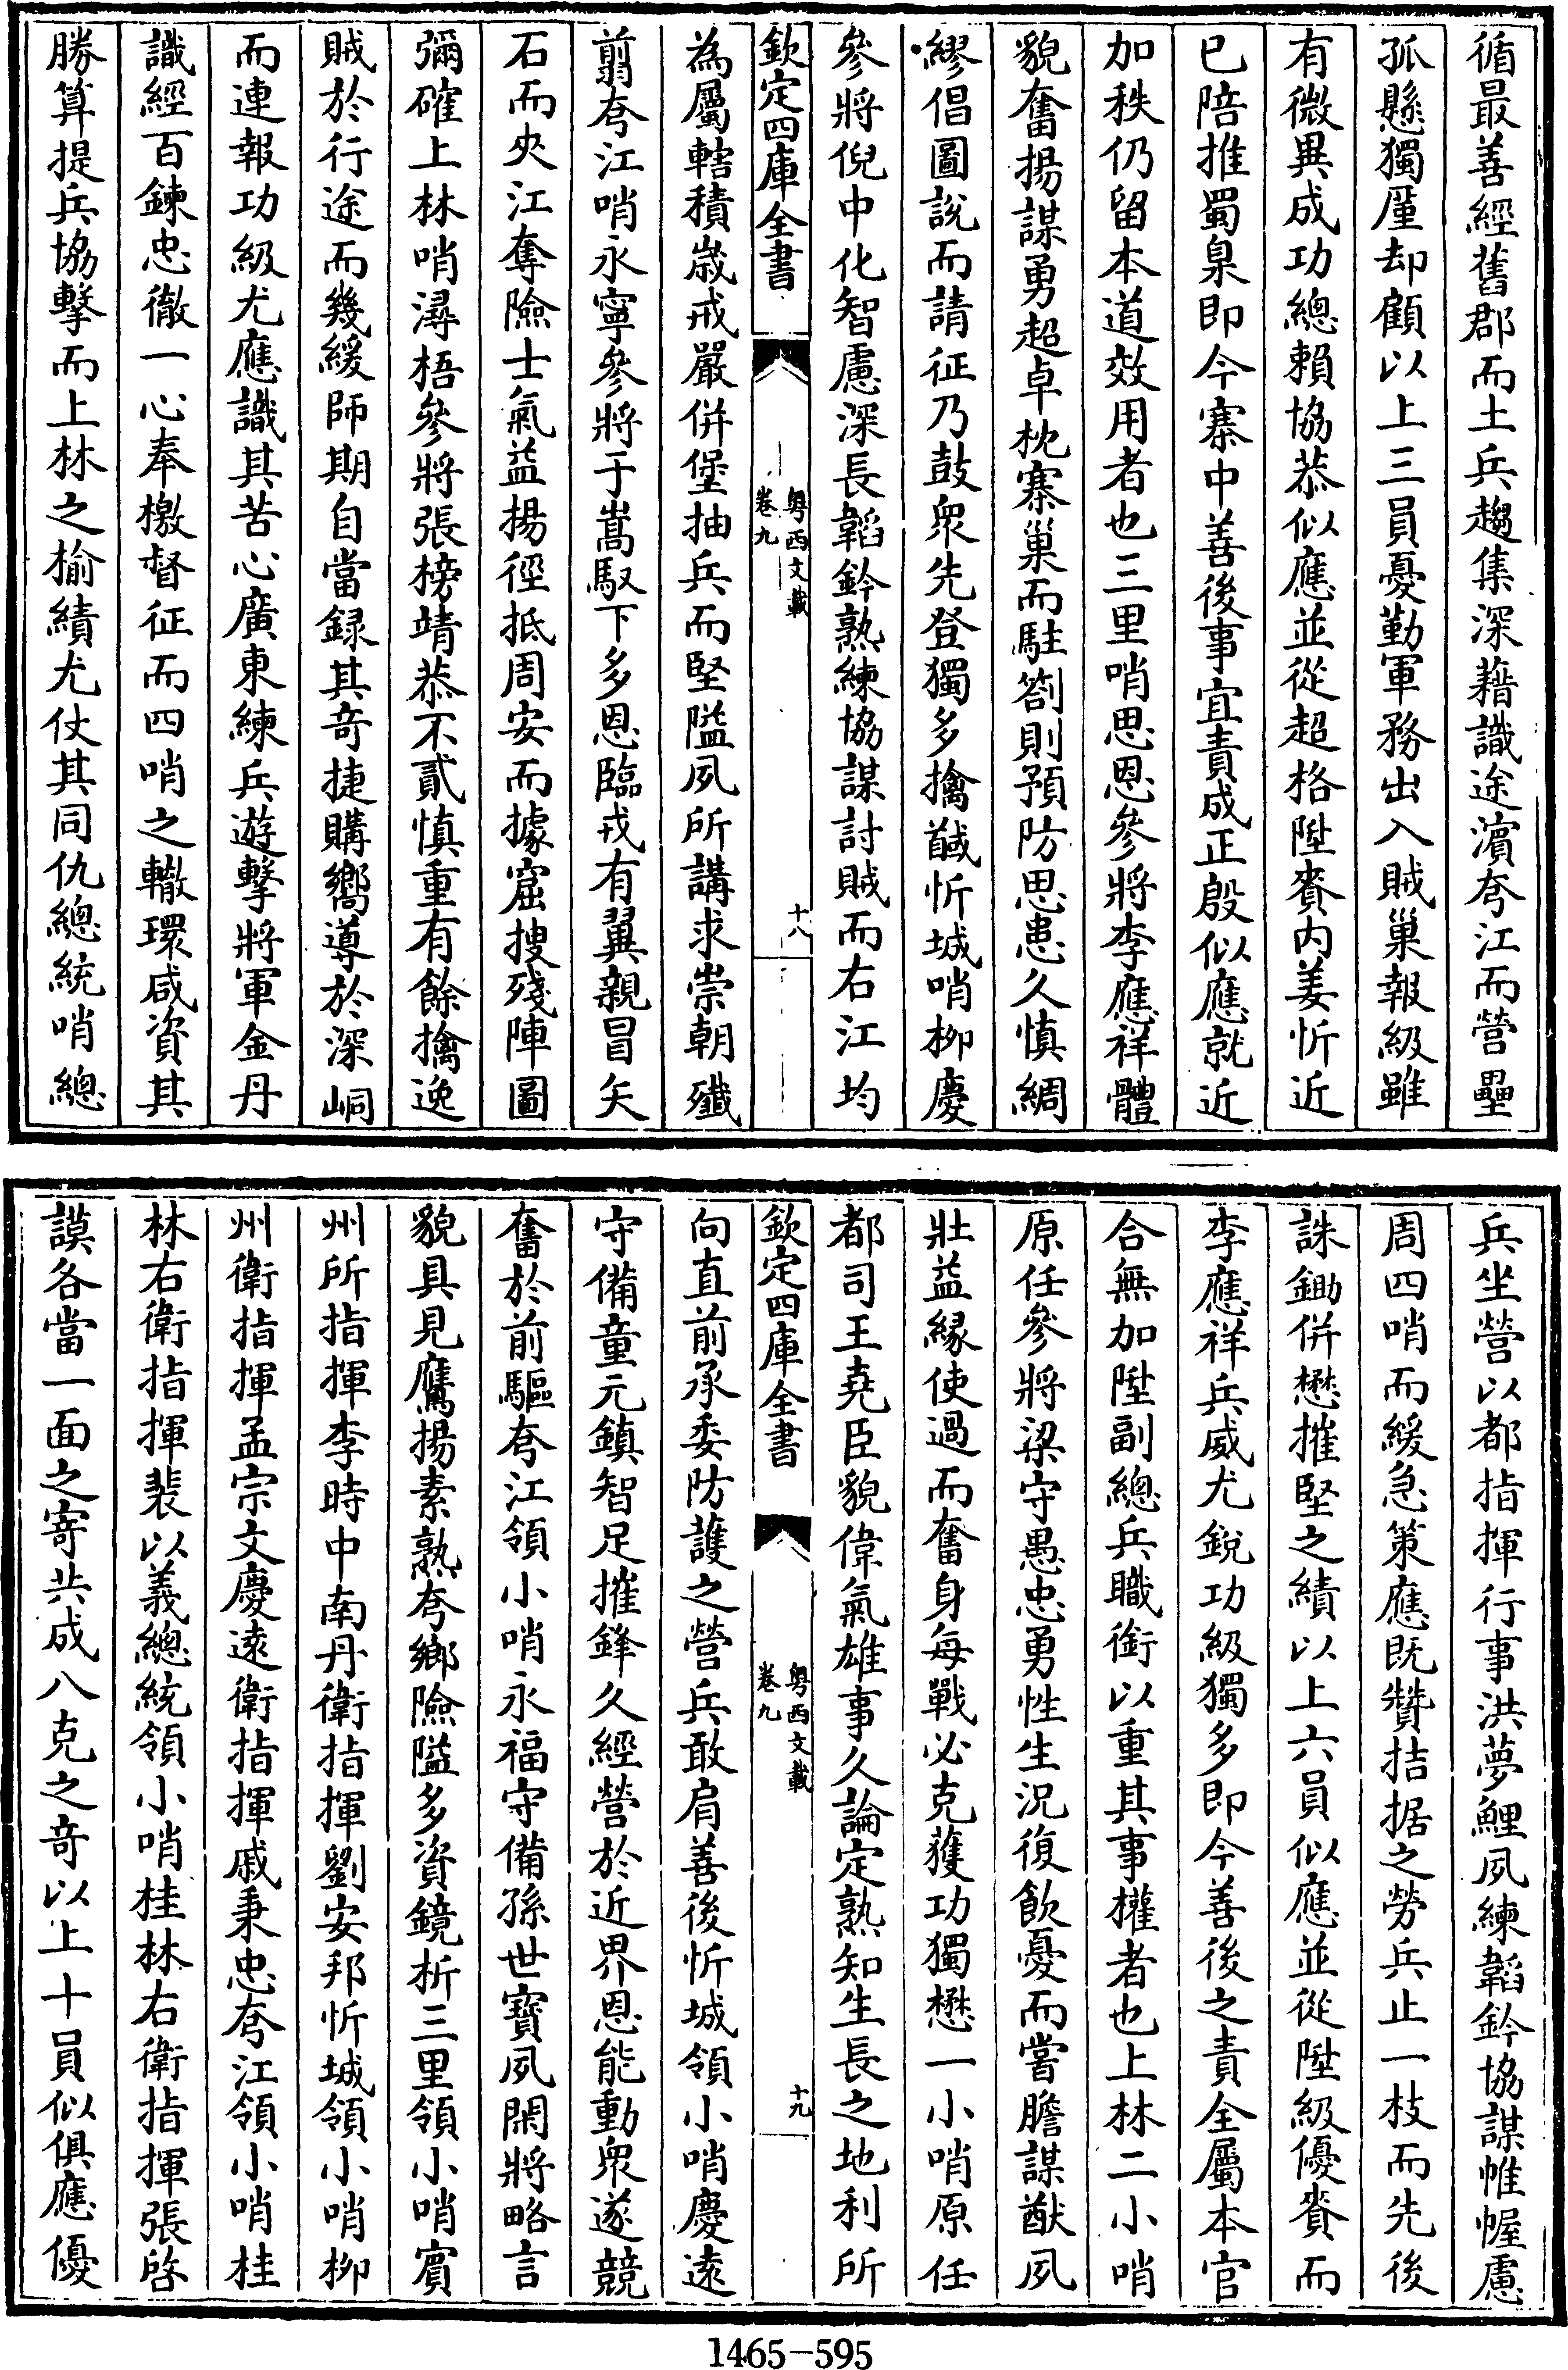 循最善經舊郡而土兵趨集深藉識途濵夸江而營壘
孤懸獨厪却顧以上三員憂勤軍務出入賊巢報級雖
有微異成功總賴協恭似應並從超格陞賚内姜忻近
已陪推蜀臬即今寨中善後事宜責成正殷似應就近
加秩仍留本道效用者也三里哨思恩參將李應祥體
貌奮揚謀勇超卓枕寨巢而駐劄則預防思患久慎綢
繆倡圖說而請征乃鼓衆先登獨多擒馘忻城哨柳慶
參將倪中化智慮深長韜鈐熟練協謀討賊而右江均
欽定四庫全書
粤西文載
卷九
十八
為屬轄積歳戒嚴併堡抽兵而堅隘夙所講求崇朝殱
翦夸江哨永寧參將于嵩馭下多恩臨戎有翼親冒矢
石而夾江奪險士氣益揚徑抵周安而據窟捜殘陣圖
彌確上林哨潯梧參將張榜靖恭不貳慎重有餘擒逸
賊於行途而幾緩師期自當録其奇捷購嚮導於深峒
而連報功級尤應識其苦心廣東練兵遊擊將軍金丹
識經百鍊忠徹一心奉檄督征而四哨之轍環咸資其
勝算提兵協擊而上林之榆績尤仗其同仇總統哨總
兵坐營以都指揮行事洪夢鯉夙練韜鈐協謀帷幄慮
周四哨而緩急策應既贊拮据之勞兵止一枝而先後
誅鋤併懋摧堅之績以上六員似應並從陞級優賚而
李應祥兵威尤銳功級獨多即今善後之責全屬本官
合無加陞副總兵職銜以重其事權者也上林二小哨
原任參將梁守愚忠勇性生況復飲憂而嘗膽謀猷夙
壯益緣使過而奮身每戰必克獲功獨懋一小哨原任
都司王堯臣貌偉氣雄事久論定熟知生長之地利所
欽定四庫全書
粤西文載
卷九
十九
向直前承委防護之營兵敢肩善後忻城領小哨慶遠
守備童元鎮智足摧鋒久經營於近界恩能動衆遂競
奮於前驅夸江領小哨永福守備孫世寶夙閑將略言
貌具見鷹揚素熟夸鄉險隘多資鏡析三里領小哨賓
州所指揮李時中南丹衛指揮劉安邦忻城領小哨柳
州衛指揮孟宗文慶遠衛指揮戚秉忠夸江領小哨桂
林右衛指揮裴以義總統領小哨桂林右衛指揮張啓
謨各當一面之寄共成八克之奇以上十員似俱應優
1465-595